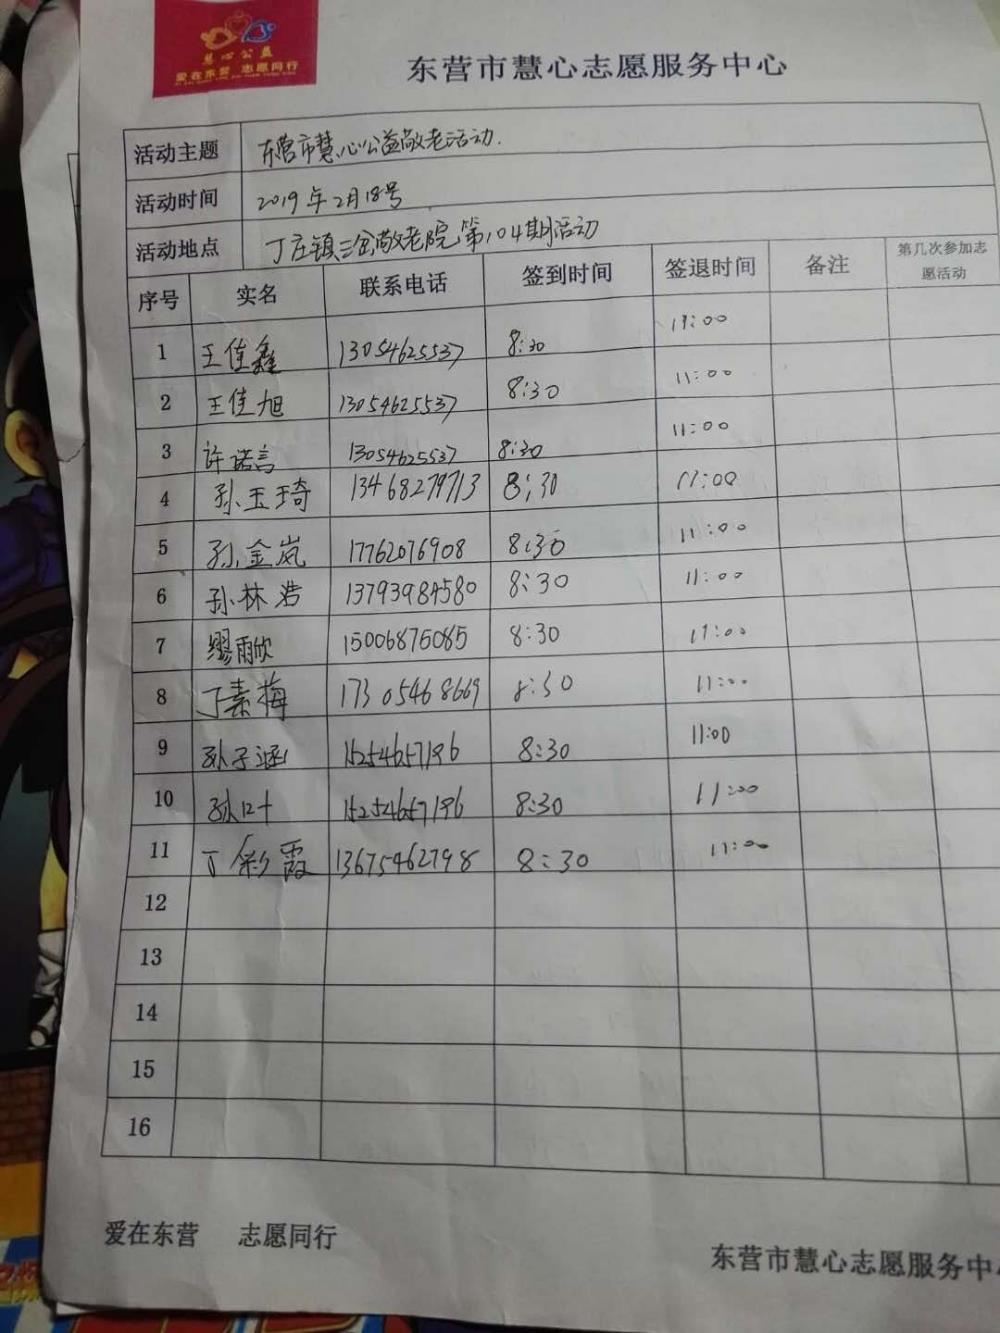 慧心公益
爱在东营 志愿同行
东营市慧心志愿服务中心
活动主题 东营市慧心公益敬老活动.
活动时间 2019年2月18号
活动地点 丁庄镇三合敬老院第104期活动
序号 实名 联系电话 签到时间 签退时间 备注 第几次参加志愿活动
1 王佳鑫 13054625537 8:30 11:00
2 王佳旭 13054625537 8:30 11:00
3 许诺言 13054625537 8:30 11:00
4 孙玉琦 13468279713 8:30 11:00
5 孙金岚 17762076908 8:30 11:00
6 孙林浩 13793984580 8:30 11:00
7 缪雨欣 15006875085 8:30 11:00
8 丁素梅 17305468669 8:30 11:00
9 孙子涵 15254657196 8:30 11:00
10 孙叶 15254657196 8:30 11:00
11 丁彩霞 13675462798 8:30 11:00
12
13
14
15
16
爱在东营 志愿同行
东营市慧心志愿服务中